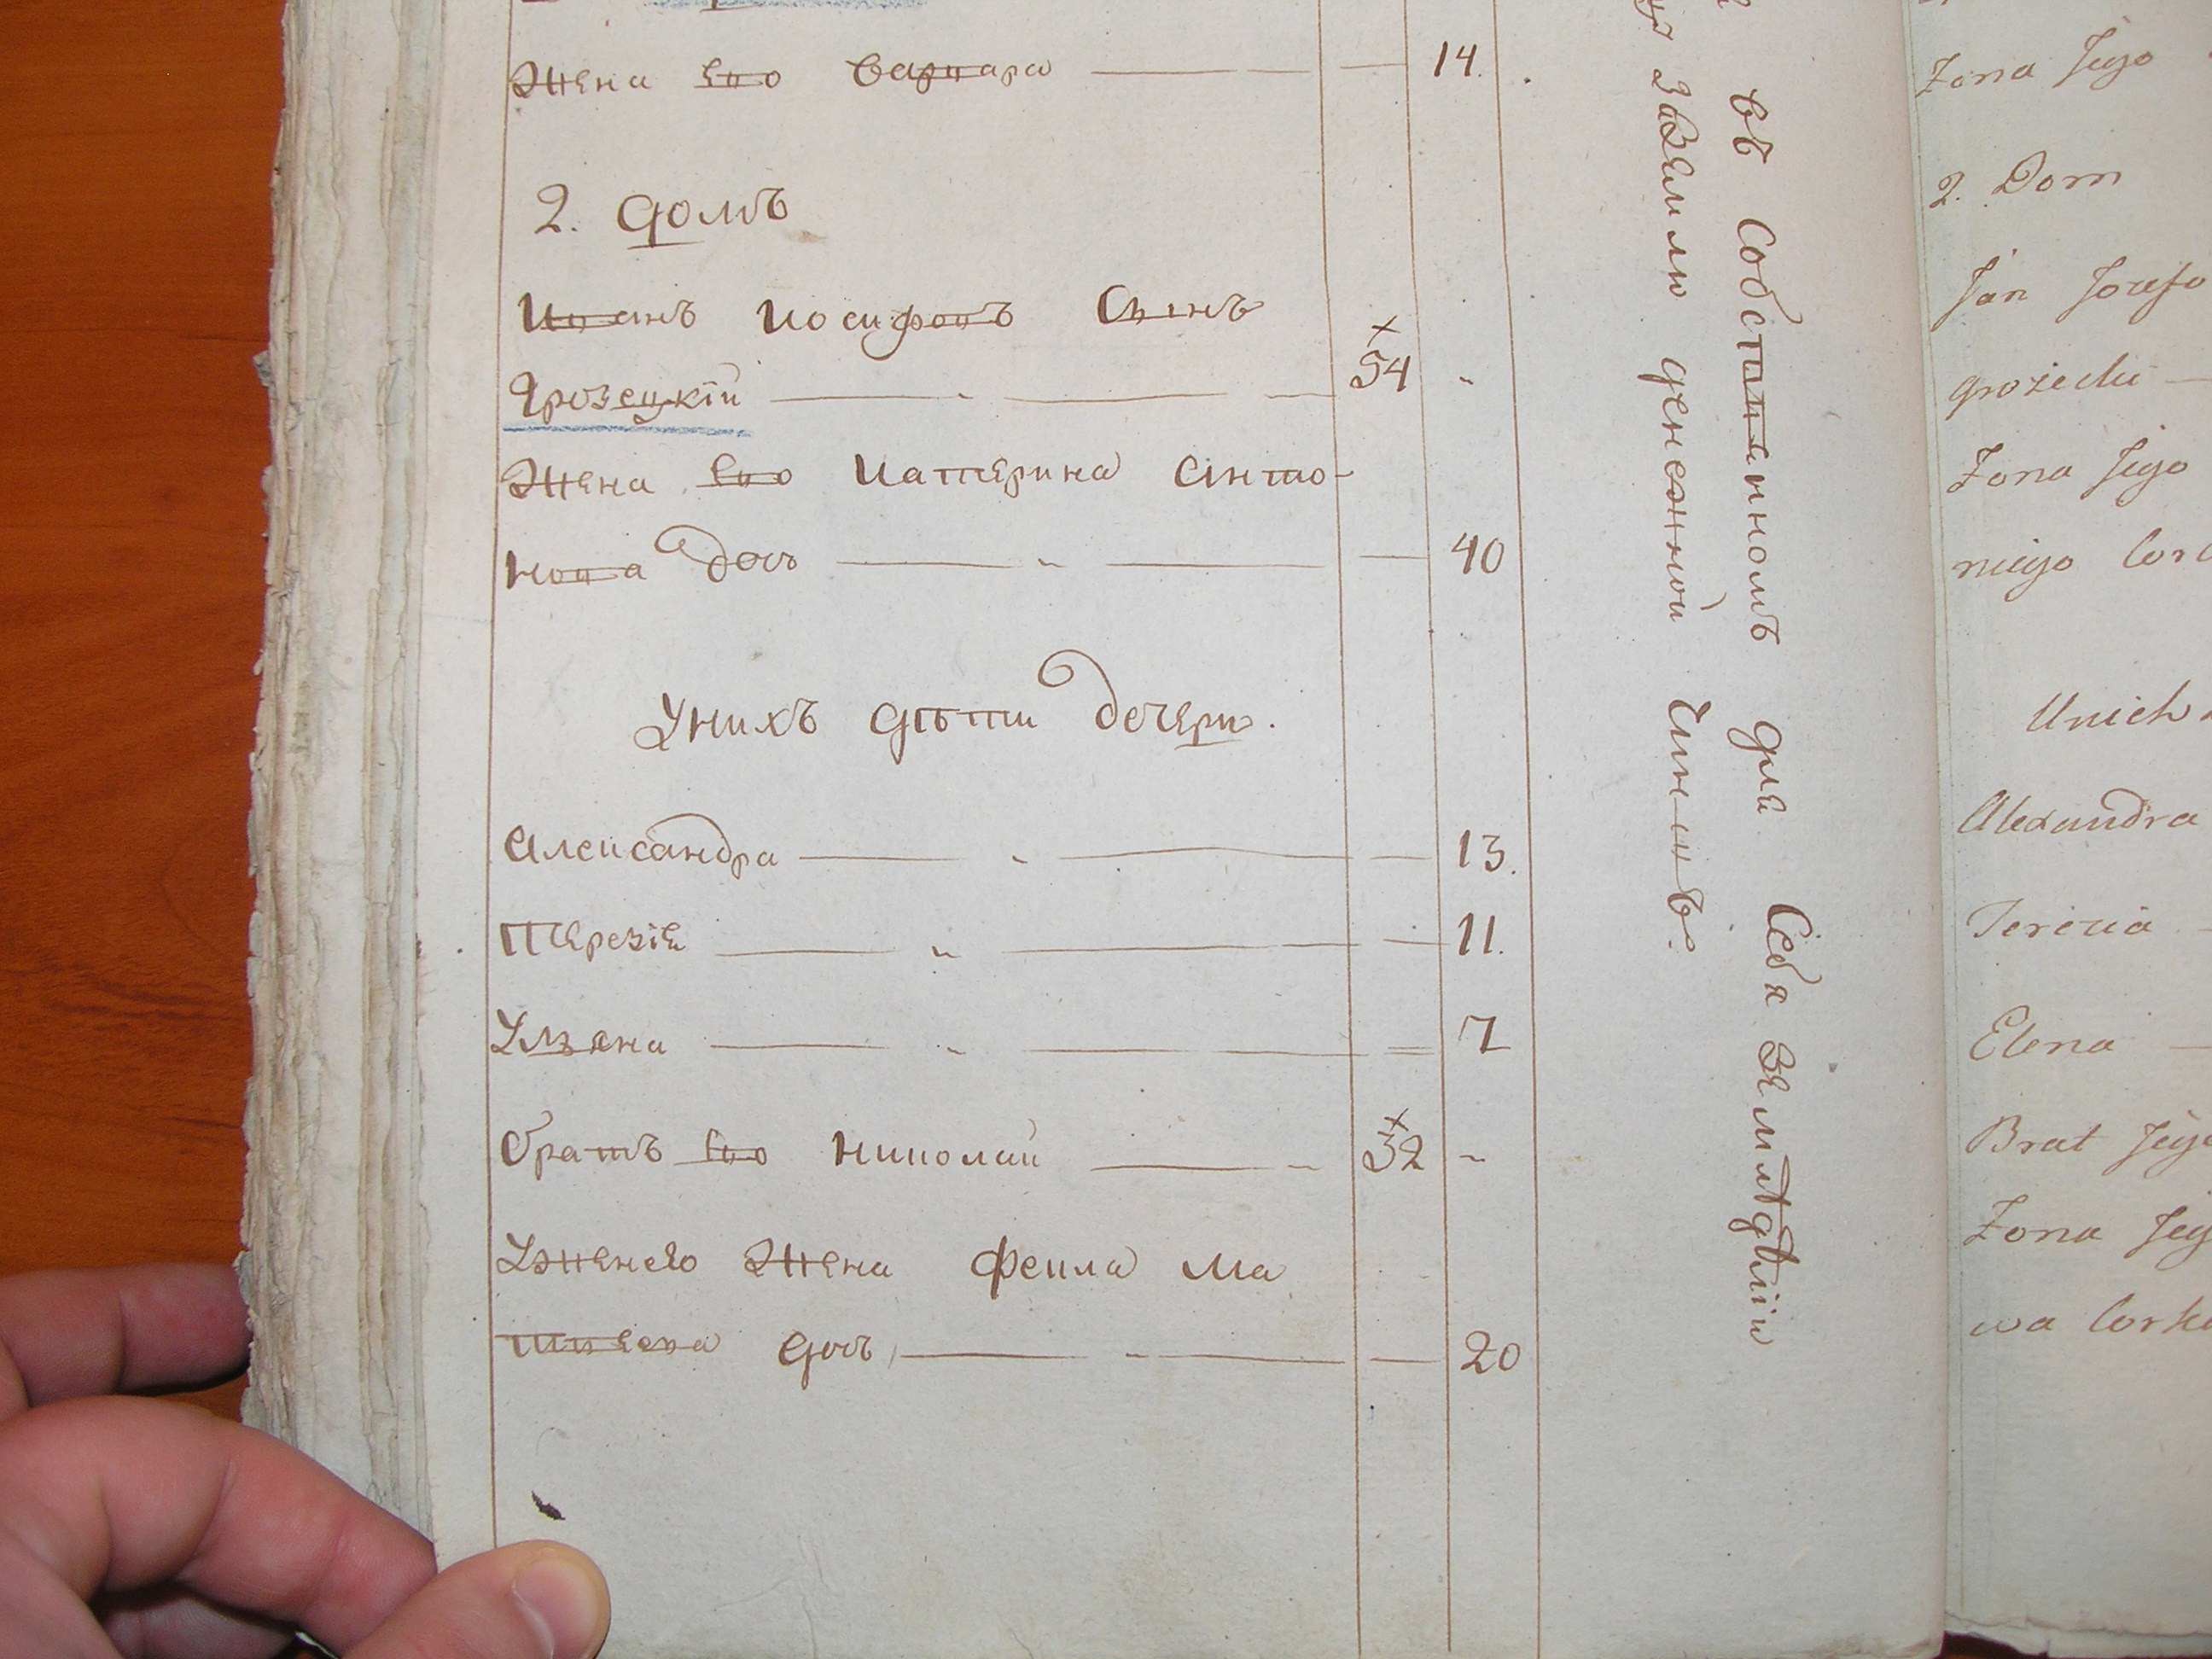 Жена Его Варвара — 14.
2. домъ
Иванъ Иосифовъ Сынъ
Грозецкій — 54
Жена Его Катерина Анто-
нова дочь — 40
Унихъ дѣти дочери.
Александра — 13.
Терезіе — 11.
Ульяна — 7
братъ Его Николай — 32
Унего Жена Фекла Ма
твеева дочь — 20
въ Собственномъ для Себя Земледѣліи
заземлю денежной Чиншъ.
Zona Jego
2. Dom
Jan Jozefo
grozecki —
Zona Jego
niego Cor
Unich
Alexandra
Terezia —
Elena —
Brat Jego
Zona Jeg
wa Cork